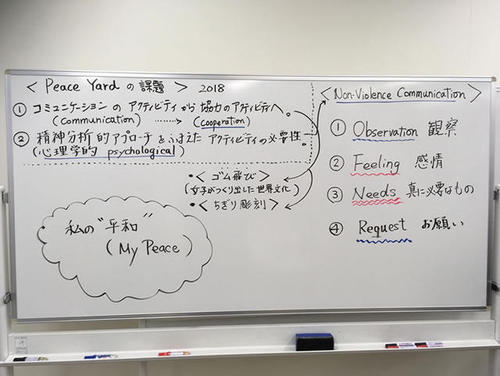 < Peace Yard の課題 > 2018
① コミュニケーションの アクティビティから 協力のアクティビティへ。
(communication) → (cooperation)
② 精神分析的アプローチをふまえた アクティビティの必要性。
(心理学的 psychological)
・< ゴム飛び >
(女子がつくり出した世界文化)
・< ちぎり彫刻 >
私の"平和"
(My Peace)
< Non-Violence Communication >
① Observation 観察
② Feeling 感情
③ Needs 真に必要なもの
④ Request お願い